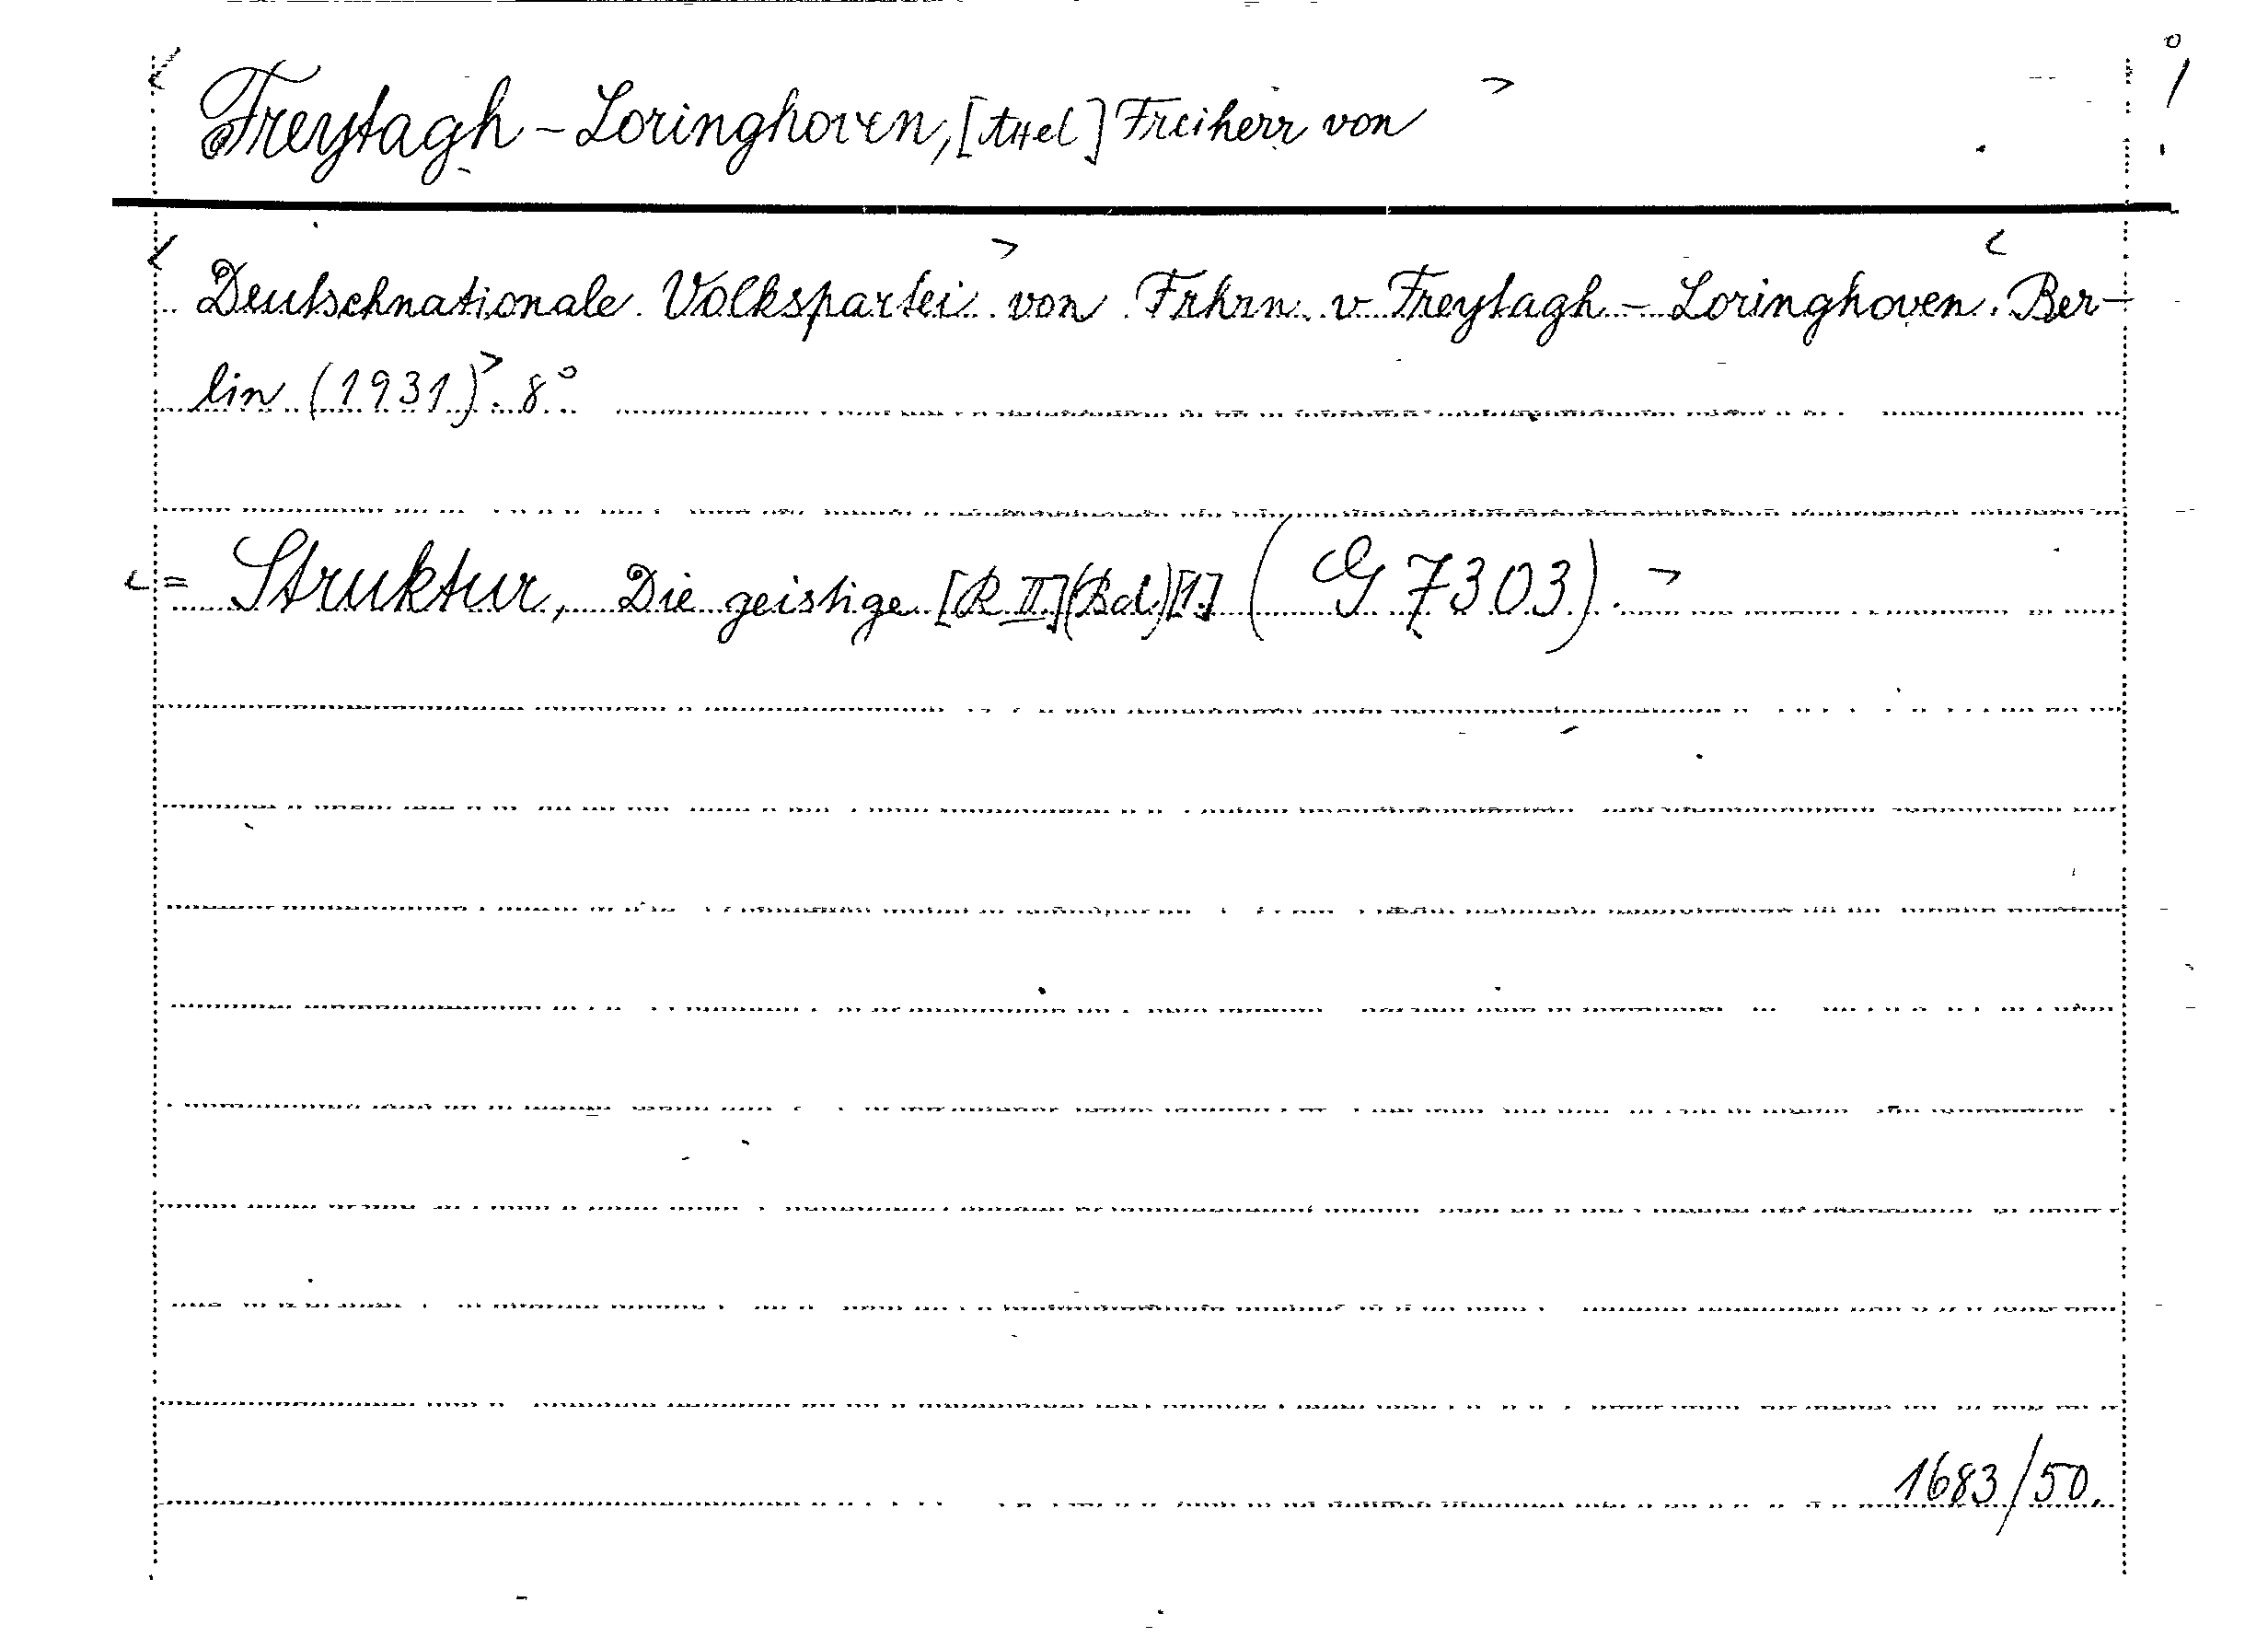 < Freytagh-Loringhoven, [Axel] Freiherr von >
< Deutschnationale Volkspartei > von Frhrn. v Freytagh-Loringhoven. < Ber-
lin (1931) >. 8°
< = Struktur, Die geistige [R II] (Bd.) [1.] (G 7303). >
1683/50.